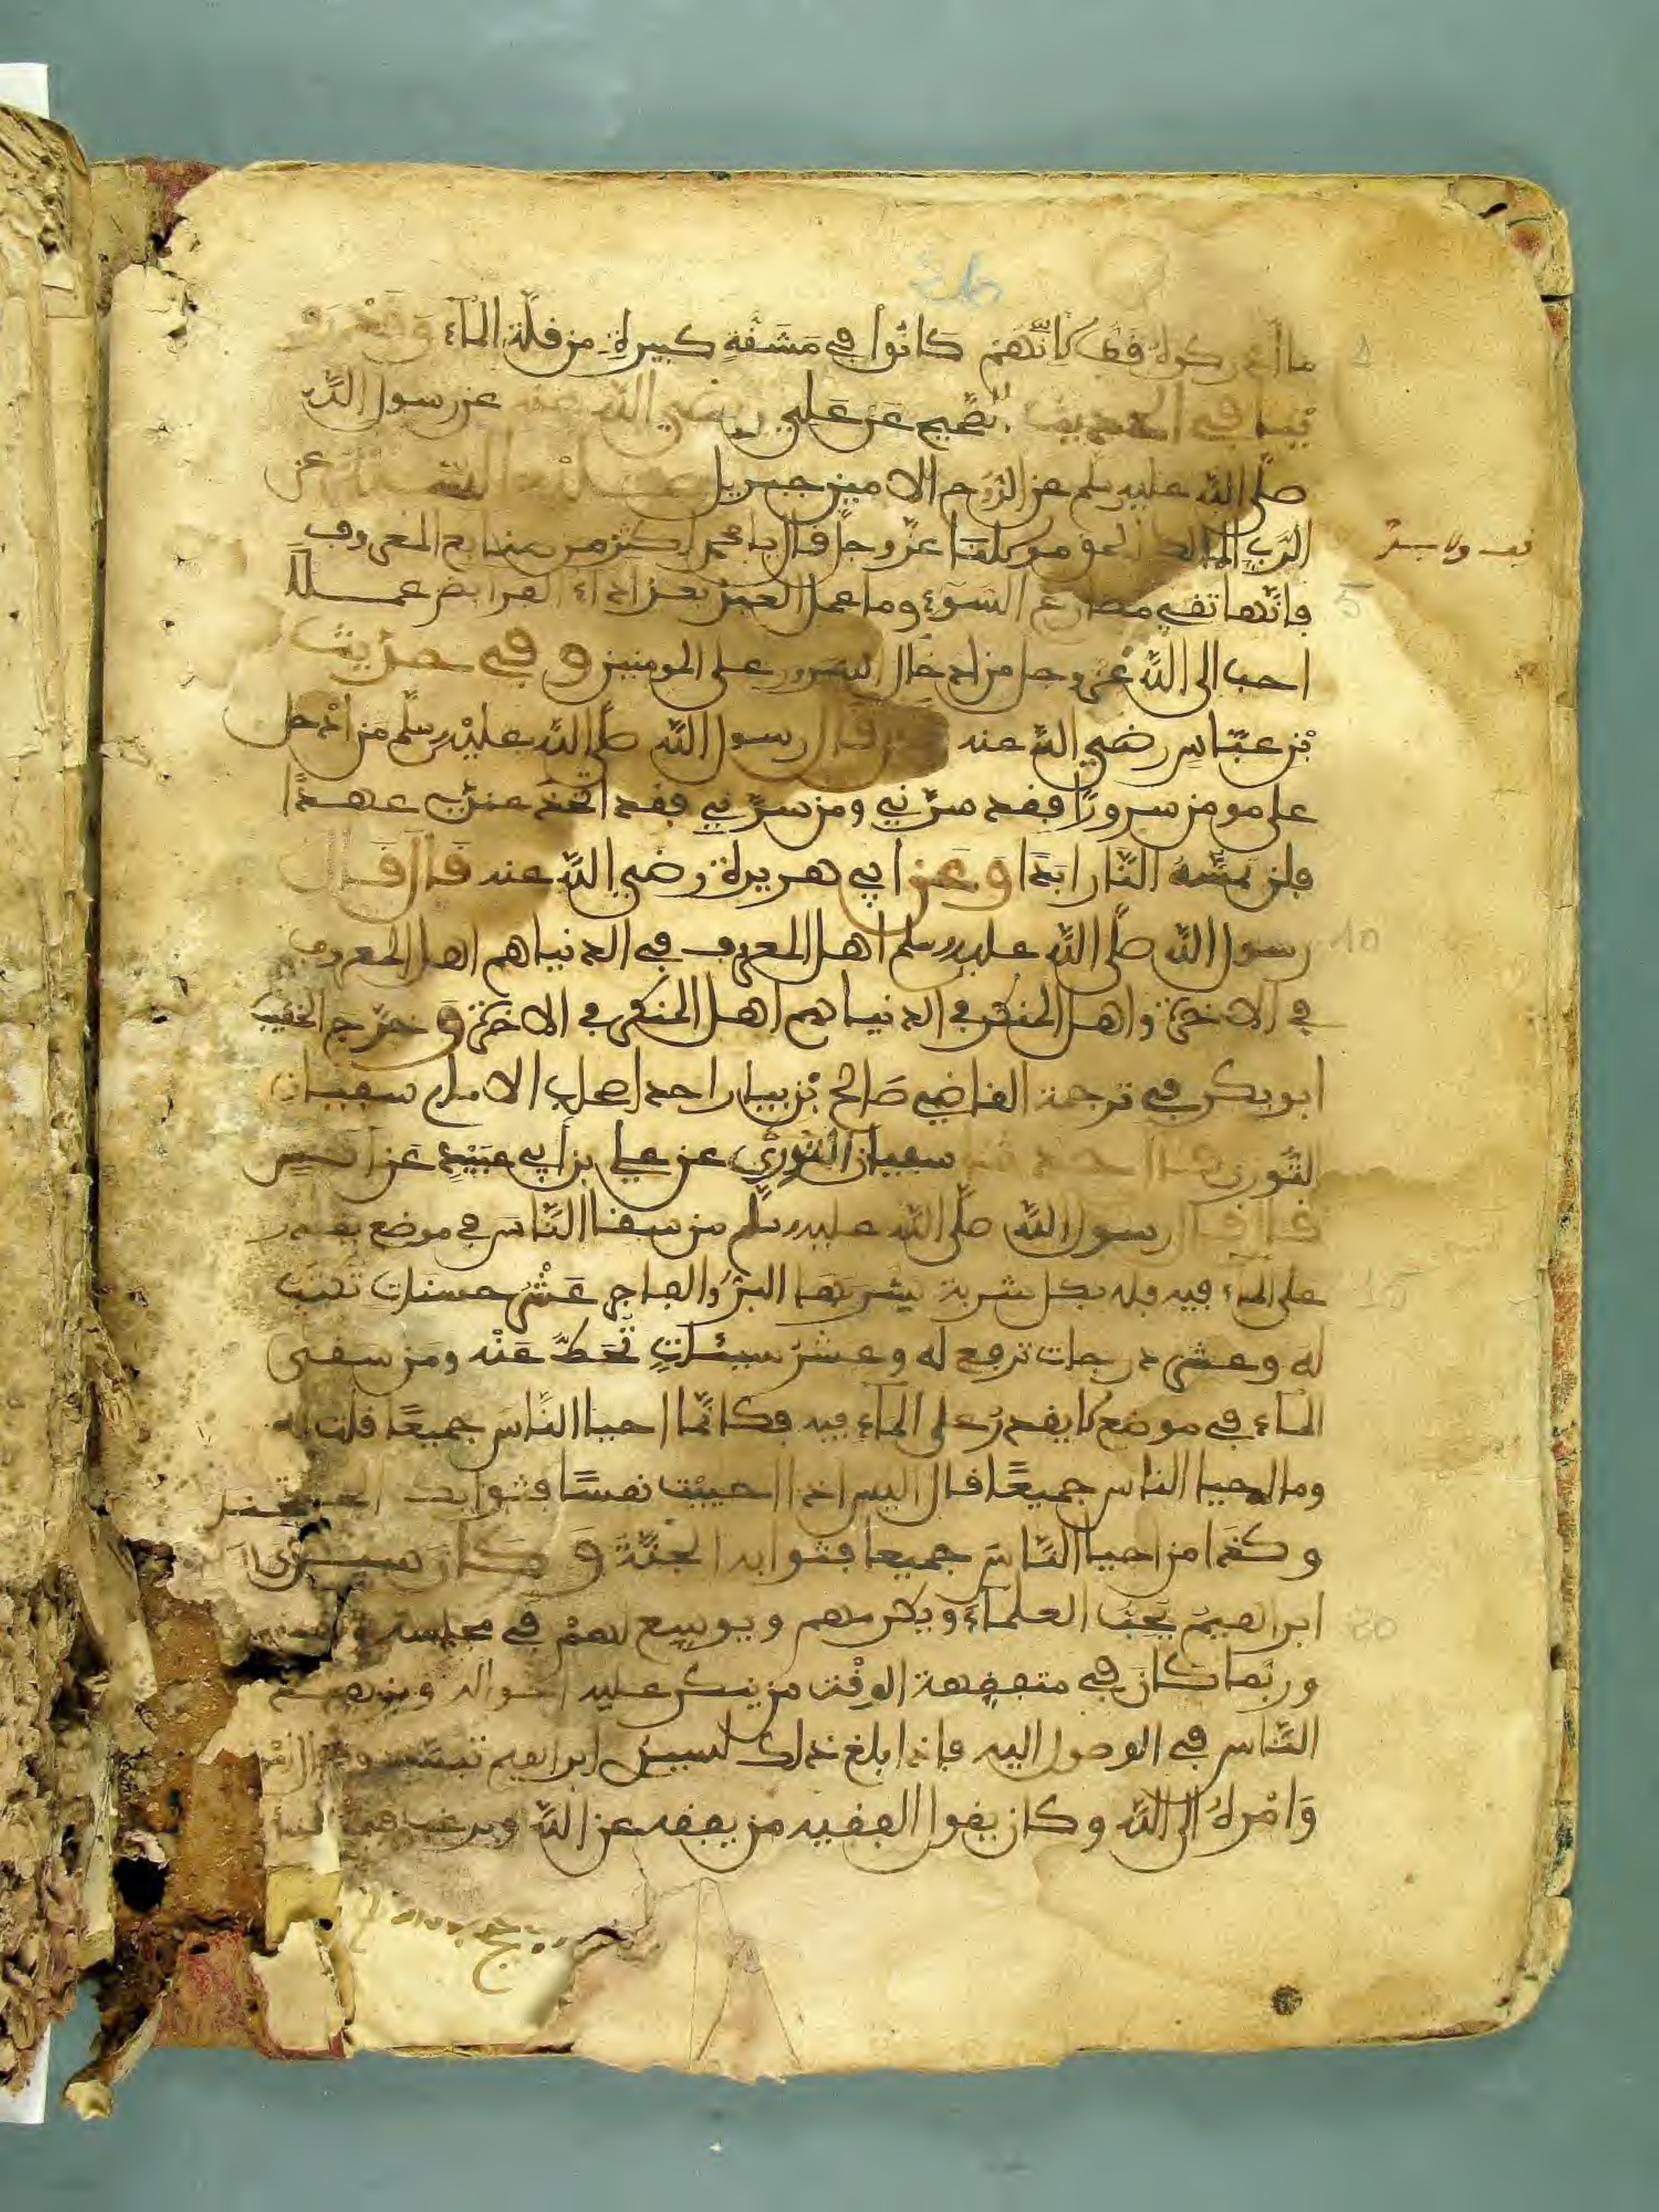 ما أدركوه قط لأنهم كانوا في مشقة كبيرة من قلة الماء وقد
في الحديث الصحيح عن علي رضي الله عنه عن رسول الله
صلى الله عليه وسلم عن الروح الامين جبريل عن
الرب عز وجل قال يا محمد اكثر من صنايع المعروف
فانها تقي مصارع السوء وما عمل العبد بعد اداء الفرايض عملا
احب الى الله عز وجل من ادخال السرور على المومنين وفي حديث
بن عباس رضي الله عنه قال رسول الله صلى الله عليه وسلم من ادخل
على مومن سرورا فقد سرني ومن سرني فقد اتخذ عندي عهدا
فلن تمسه النار ابدا وعن ابي هريرة رضي الله عنه قال قال
رسول الله صلى الله عليه وسلم اهل المعروف في الدنيا هم اهل المعروف
في الاخرة واهل المنكر في الدنيا هم اهل المنكر في الاخرة وخرج الخطيب
ابو بكر في ترجمة القاضي صالح بن بيان احد اصحاب الامام سفيان
الثوري سفيان الثوري عن علي بن ابي عبيد عن
قال قال رسول الله صلى الله عليه وسلم من سقا الناس في موضع يقدر
على الماء فيه فله بكل شربة يشربها البر والفاجر عشر حسنات تكتب
له وعشر درجات ترفع له وعشر سيئات تحط عنه ومن سقى
الماء في موضع لا يقدر على الماء فيه فكانما احيا الناس جميعا قلت له
وما احيا الناس جميعا قال اليس اذا احييت نفسا فثوابك الجنة
وكذا من احيا الناس جميعا فثوابه الجنة وكان سيدي
ابراهيم يحب العلماء ويكرمهم ويوسع لهم في مجلسه
وربما كان في متفقهة الوقت من ينكر عليه احواله ويزهد
الناس في الوصول اليه فاذا بلغ ذلك لسيدي ابراهيم تبسم وقال
وامره الى الله وكان يقول الفقيه من يفقه عن الله